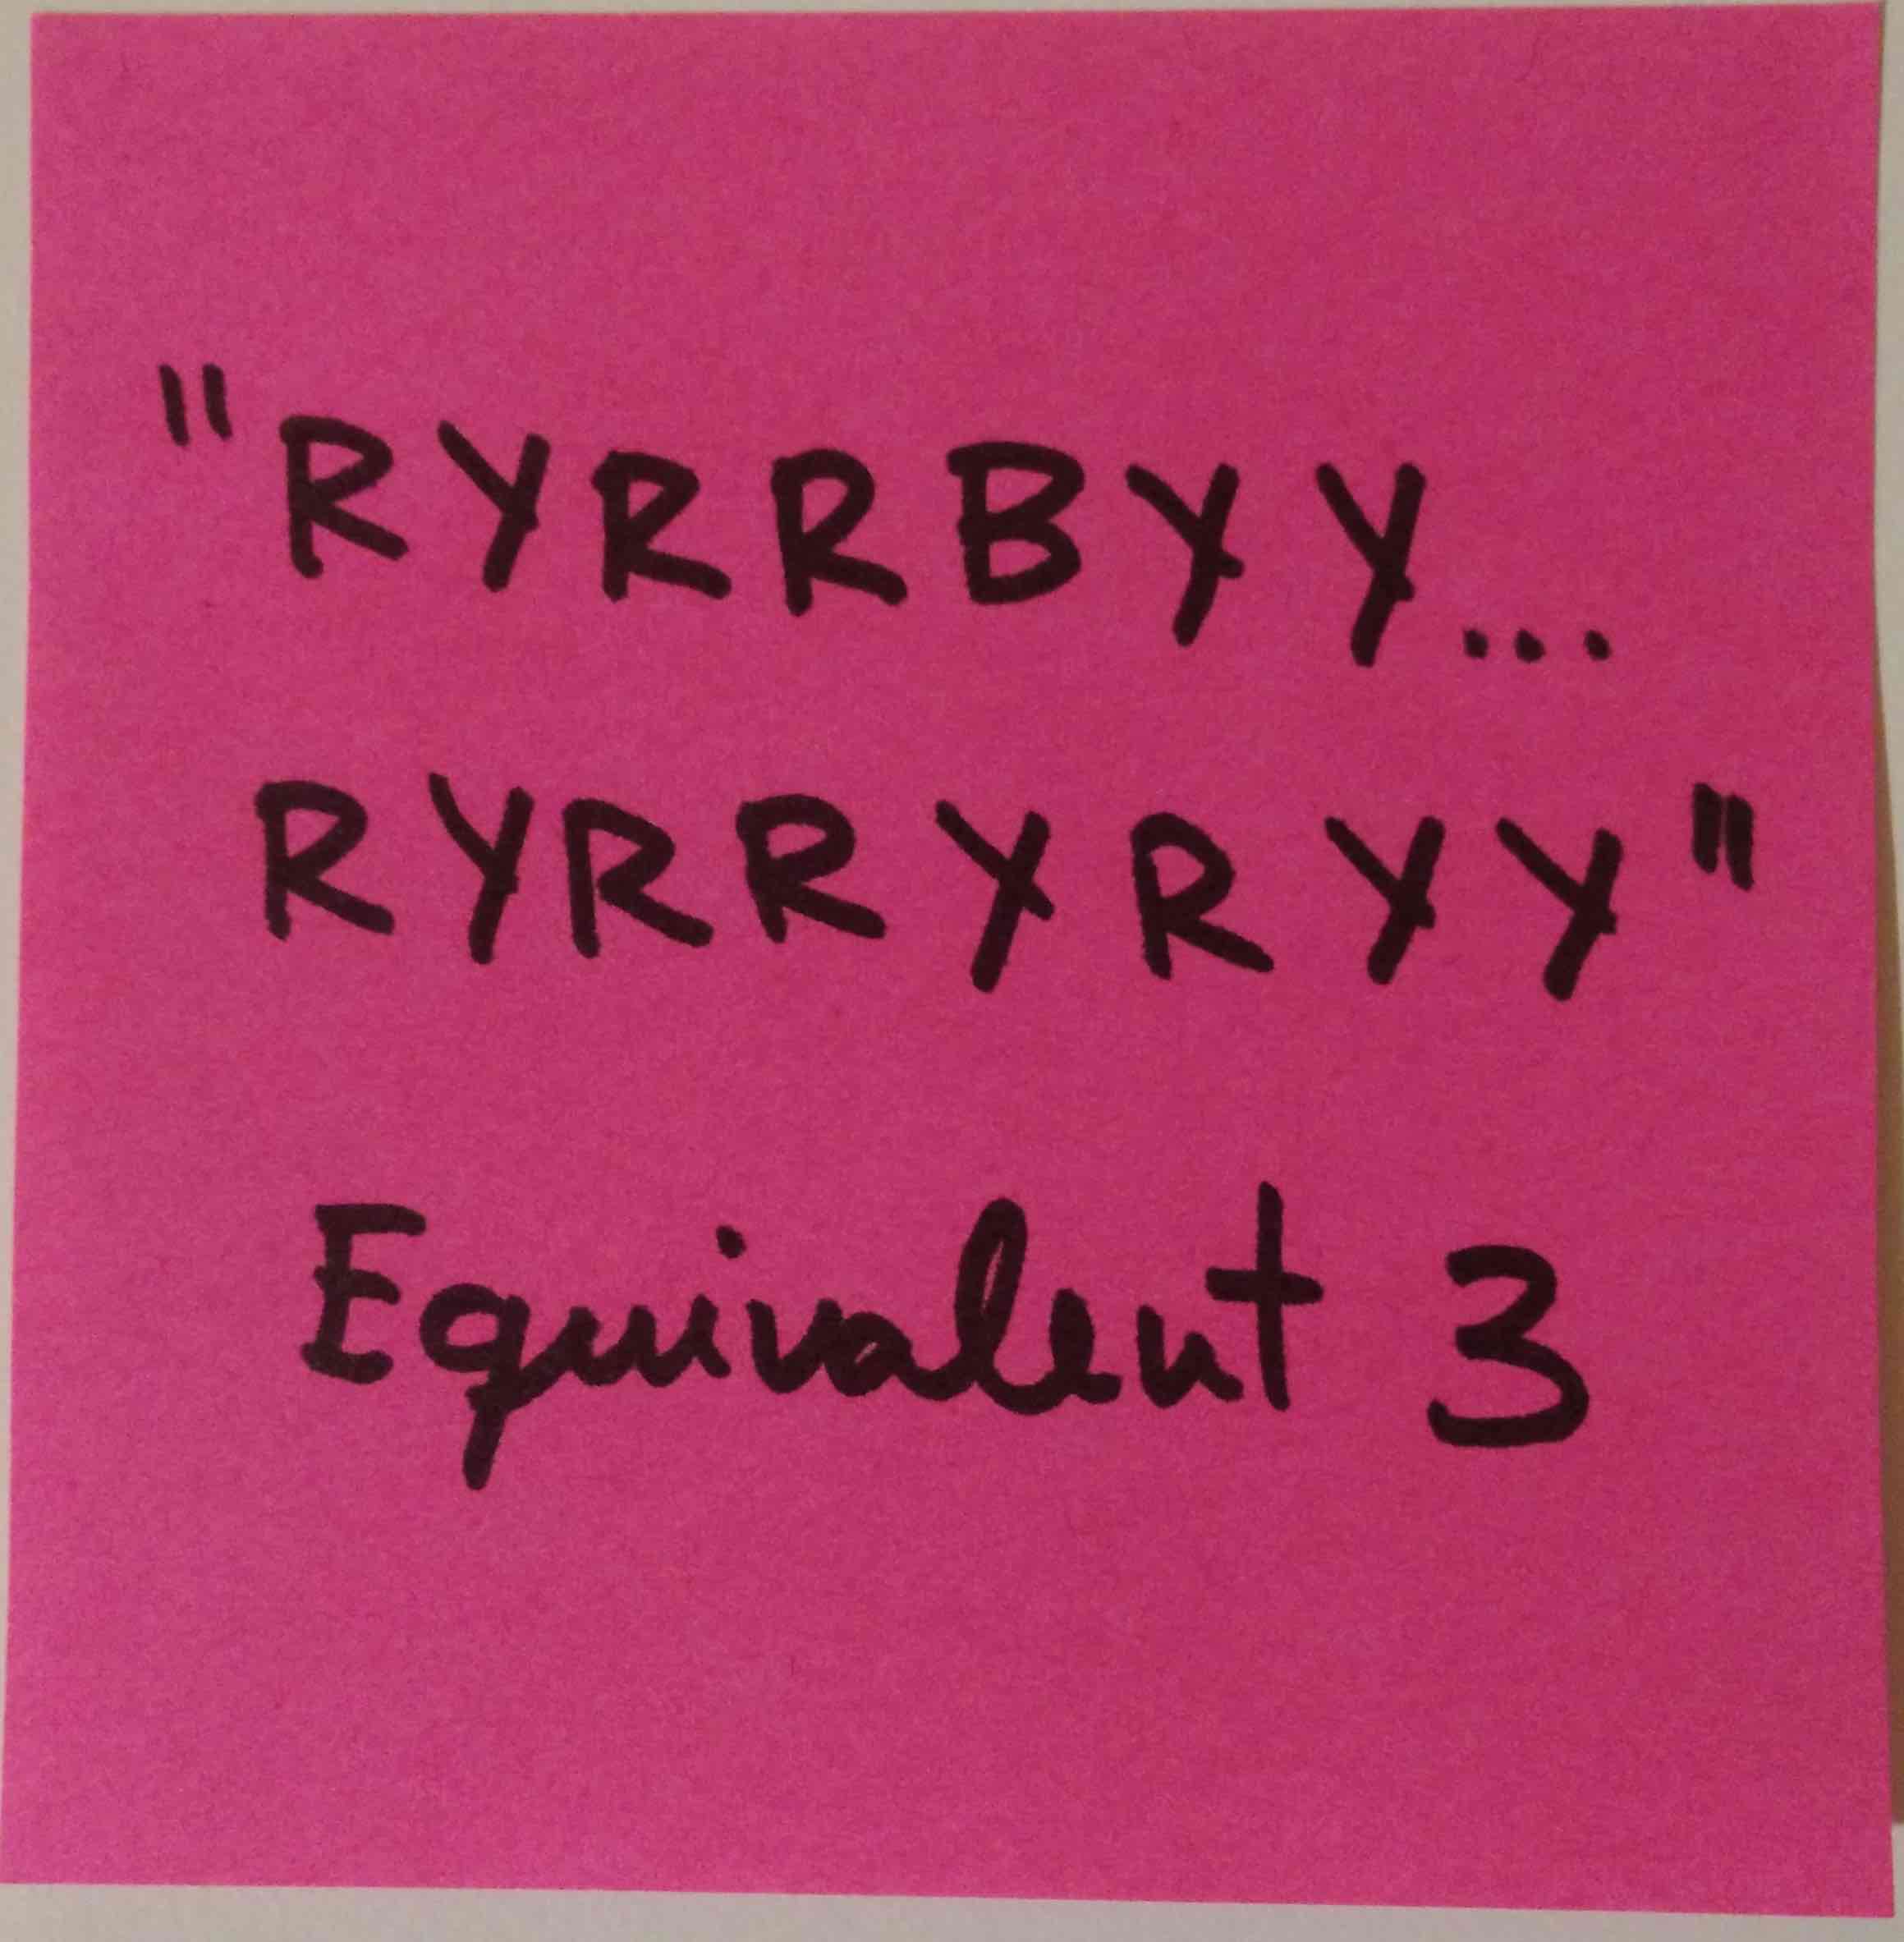 "RYRRBYY...
RYRRYRYY"
Equivalent 3